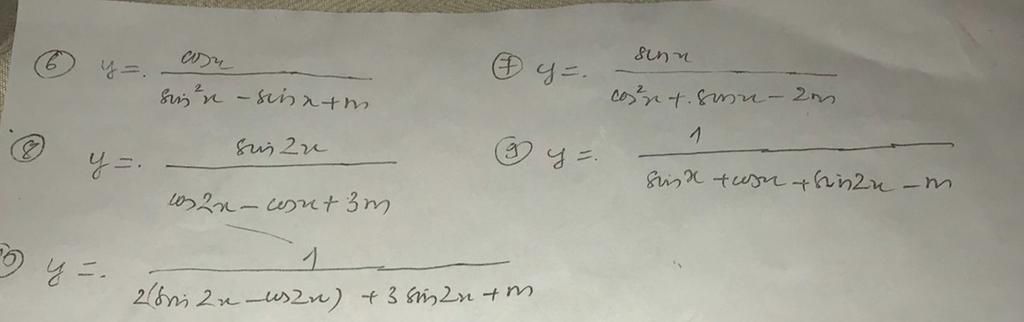 ⑥ y = cosx / (sin²x - sinx + m)
⑦ y = sinx / (cos²x + sinx - 2m)
⑧ y = sin2x / (cos2x - cosx + 3m)
⑨ y = 1 / (sinx + cosx + sin2x - m)
y = 1 / (2(sin2x - cos2x) + 3sin2x + m)